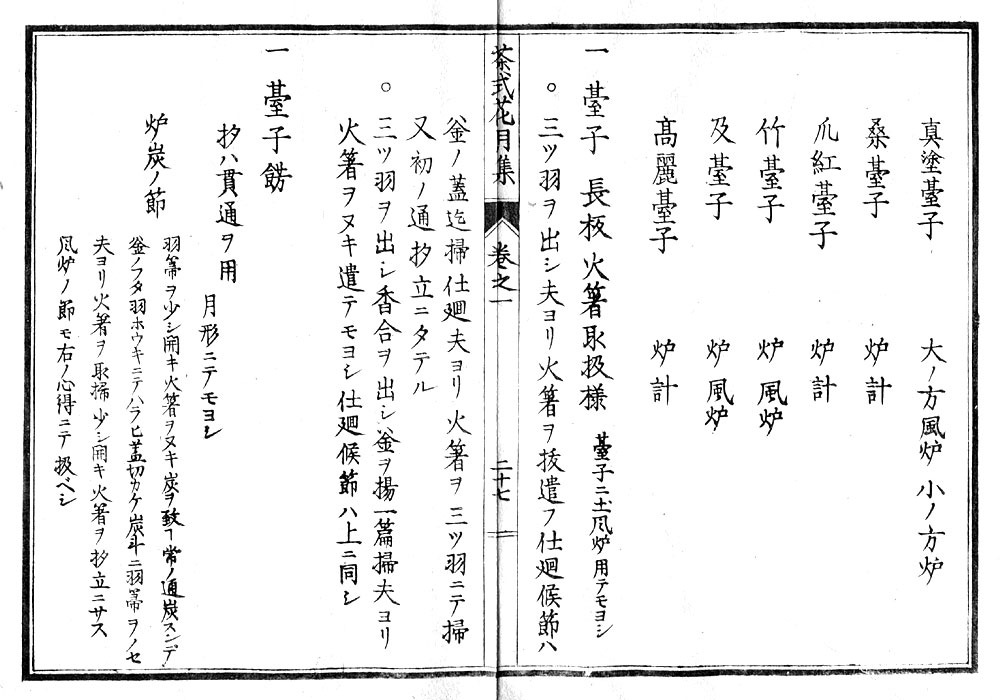 真塗䑓子　大ノ方風炉　小ノ方炉
桑䑓子　炉計
爪紅䑓子　炉計
竹䑓子　炉風炉
及䑓子　炉風炉
髙麗䑓子　炉計
一　䑓子　長板　火箸取扱様　䑓子ニ土風炉用テモヨシ
○　三ツ羽ヲ出シ夫ヨリ火箸ヲ抜遣フ仕廻候節ハ
茶式花月集　巻之一　二十七
釜ノ蓋迄掃仕廻夫ヨリ火箸ヲ三ツ羽ニテ掃
又初ノ通抄立ニタテル
○　三ツ羽ヲ出シ香合ヲ出シ釜ヲ揚一篇掃夫ヨリ
火箸ヲヌキ遣テモヨシ仕廻候節ハ上ニ同シ
一　䑓子餝
抄ハ貫通ヲ用　月形ニテモヨシ
炉炭ノ節　羽箒ヲ少シ開キ火箸ヲヌキ炭ヲ致ヿ常ノ通炭スンデ
釜ノフタ羽ホウキニテハラヒ蓋切カケ炭斗ニ羽箒ヲノセ
夫ヨリ火箸ヲ取掃少シ開キ火箸ヲ抄立ニサス
風炉ノ節モ右ノ心得ニテ扱ベシ